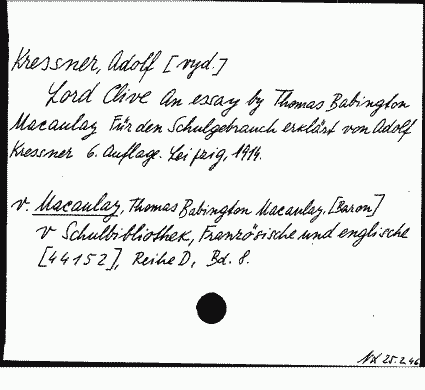 Kressner, Adolf [vyd.]
Lord Clive An essay by Thomas Babington
Macaulay Für den Schulgebrauch erklärt von Adolf
Kressner 6. Auflage. Leipzig, 1914.
v. Macaulay, Thomas Babington Macaulay, [Baron]
v Schulbibliothek, Französische und englische
[44152], Reihe D, Bd. 8.
25.2.46